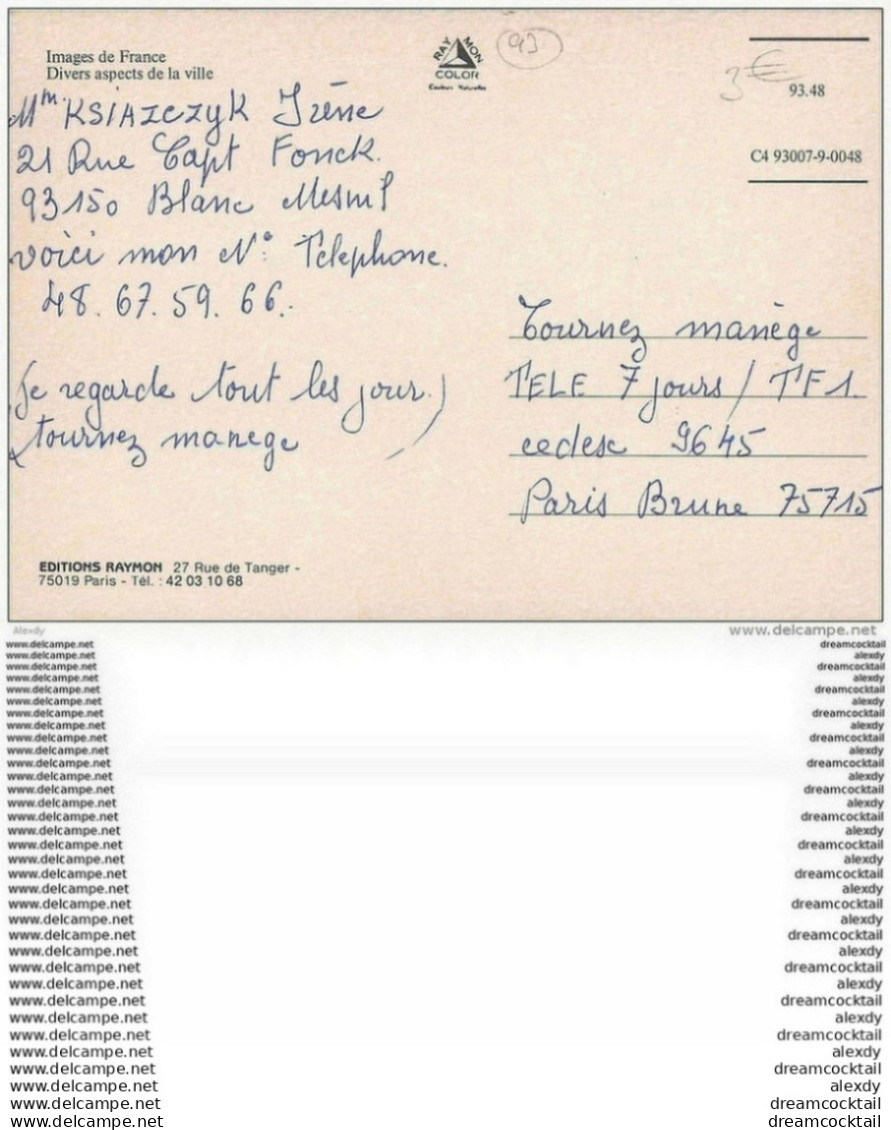 Images de France
Divers aspects de la ville
RAYMON
COLOR
Couleurs Naturelles
93
3€
93.48
C4 93007-9-0048
Mm KSIAZCZYK Irène
21 Rue Capt Fonck.
93150 Blanc Mesnil
voici mon N°: Telephone.
48. 67. 59. 66.
(Je regarde tout les jour.)
tournez manege
Tournez manège
TELE 7 jours / TF1.
cedesc 9645
Paris Brune 75715
EDITIONS RAYMON 27 Rue de Tanger -
75019 Paris - Tél. : 42 03 10 68
Alexdy
www.delcampe.net
www.delcampe.net dreamcocktail
www.delcampe.net alexdy
www.delcampe.net dreamcocktail
www.delcampe.net alexdy
www.delcampe.net dreamcocktail
www.delcampe.net alexdy
www.delcampe.net dreamcocktail
www.delcampe.net alexdy
www.delcampe.net dreamcocktail
www.delcampe.net alexdy
www.delcampe.net dreamcocktail
www.delcampe.net alexdy
www.delcampe.net dreamcocktail
www.delcampe.net alexdy
www.delcampe.net dreamcocktail
www.delcampe.net alexdy
www.delcampe.net dreamcocktail
www.delcampe.net alexdy
www.delcampe.net dreamcocktail
www.delcampe.net alexdy
www.delcampe.net dreamcocktail
www.delcampe.net alexdy
www.delcampe.net dreamcocktail
www.delcampe.net alexdy
www.delcampe.net dreamcocktail
www.delcampe.net alexdy
www.delcampe.net dreamcocktail
www.delcampe.net alexdy
www.delcampe.net dreamcocktail
www.delcampe.net alexdy
www.delcampe.net dreamcocktail
www.delcampe.net alexdy
www.delcampe.net dreamcocktail
www.delcampe.net dreamcocktail